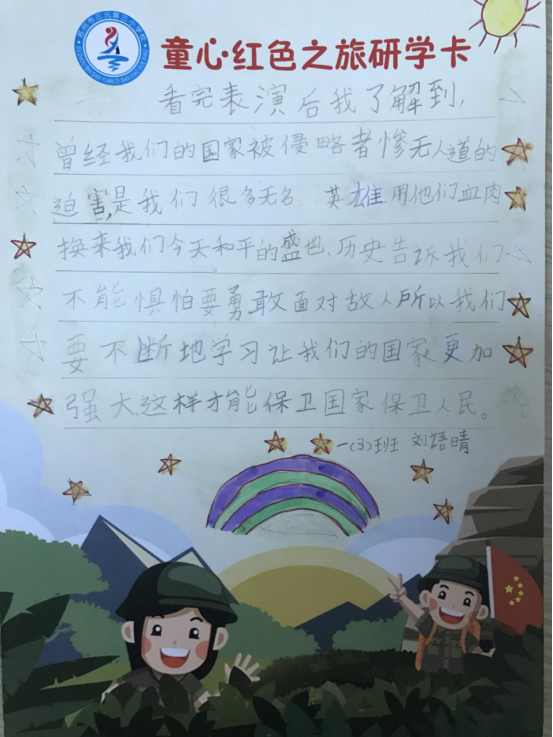 童心·红色之旅研学卡
看完表演后我了解到,
曾经我们的国家被侵略者惨无人道的
迫害,是我们很多无名 英雄用他们血肉
换来我们今天和平的盛世、历史告诉我们
不能惧怕要勇敢面对敌人所以我们
要不断地学习让我们的国家更加
强大,这样才能保卫国家保卫人民。
一(3)班 刘语晴